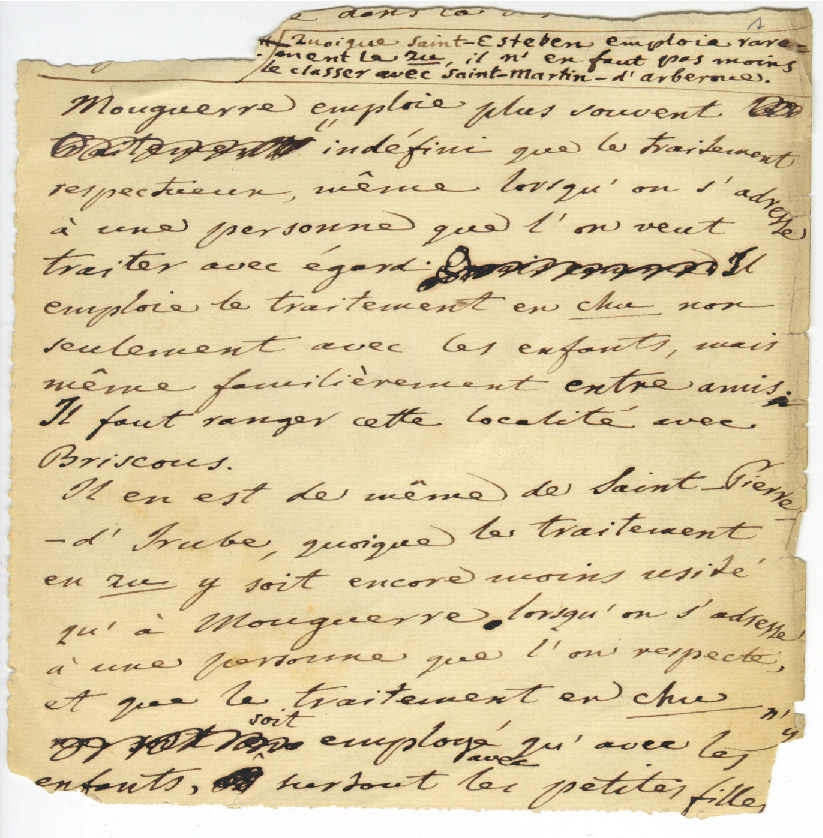 dans la
Quoique Saint-Esteben emploie rare=
ment le zu, il n'en faut pas moins
le classer avec Saint-Martin-d'arberoues.
Mouguerre emploie plus souvent
l'indéfini que le traitement
respectueux, même lorsqu'on s'adresse
à une personne que l'on veut
traiter avec égard. Il
emploie le traitement en chu non
seulement avec les enfants, mais
même familièrement entre amis.
Il faut ranger cette localité avec
Briscous.
Il en est de même de Saint-Pierre-
-d'Irube, quoique le traitement
en zu y soit encore moins usité
qu'à Mouguerre, lorsqu'on s'adresse
à une personne que l'on respecte,
et que le traitement en chu n'y
soit employé qu'avec les
enfants, surtout avec les petites filles